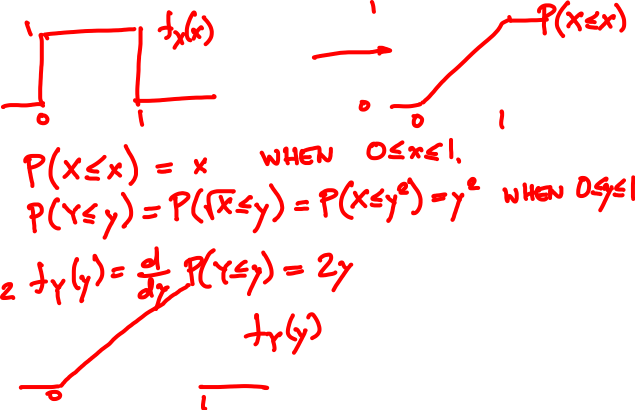 1 f_X(x) 1 P(X≤x)
0
0 1 0 1
P(X≤x) = x WHEN 0≤x≤1.
P(Y≤y) = P(√X≤y) = P(X≤y²) = y² WHEN 0≤y≤1
2 f_Y(y) = d/dy P(Y≤y) = 2y
f_Y(y)
0 1